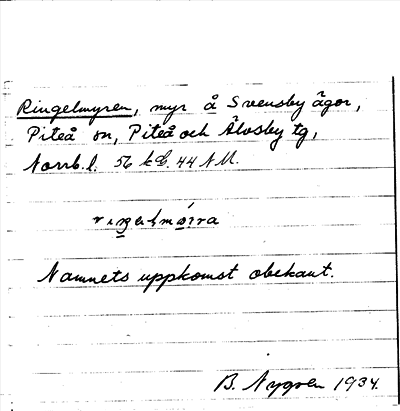 Ringelmyren, myr å Svensby ägor,
Piteå sn, Piteå och Älvsby tg,
Norrb. l. 56 kE. 44 NM.
Namnets uppkomst obekant.
B. Nygren 1934.